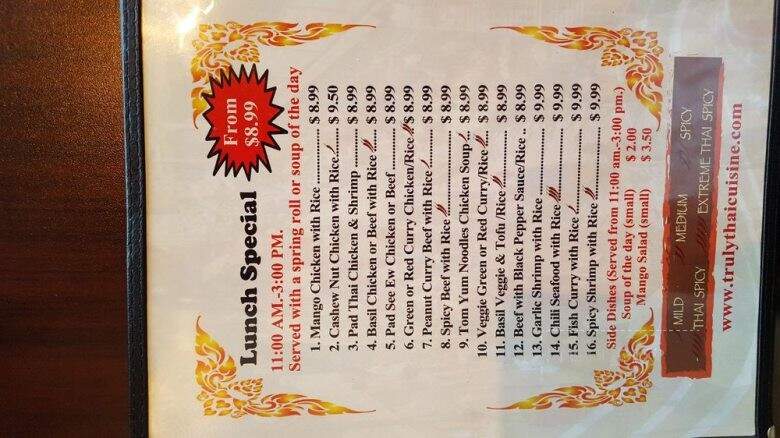 From
$8.99
Lunch Special
11:00 AM.-3:00 PM.
Served with a spring roll or soup of the day
1. Mango Chicken with Rice ............ $ 8.99
2. Cashew Nut Chicken with Rice...... $ 9.50
3. Pad Thai Chicken & Shrimp .......... $ 8.99
4. Basil Chicken or Beef with Rice ...... $ 8.99
5. Pad See Ew Chicken or Beef........... $ 8.99
6. Green or Red Curry Chicken/Rice $ 8.99
7. Peanut Curry Beef with Rice .......... $ 8.99
8. Spicy Beef with Rice...................... $ 8.99
9. Tom Yum Noodles Chicken Soup .. $ 8.99
10. Veggie Green or Red Curry/Rice ... $ 8.99
11. Basil Veggie & Tofu /Rice ............. $ 8.99
12. Beef with Black Pepper Sauce/Rice .. $ 8.99
13. Garlic Shrimp with Rice ................ $ 9.99
14. Chili Seafood with Rice.................. $ 9.99
15. Fish Curry with Rice ..................... $ 9.99
16. Spicy Shrimp with Rice.................. $ 9.99
Side Dishes (Served from 11:00 am.-3:00 pm.)
Soup of the day (small) $ 2.00
Mango Salad (small) $ 3.50
MILD MEDIUM SPICY
THAI SPICY EXTREME THAI SPICY
www.trulythaicuisine.com